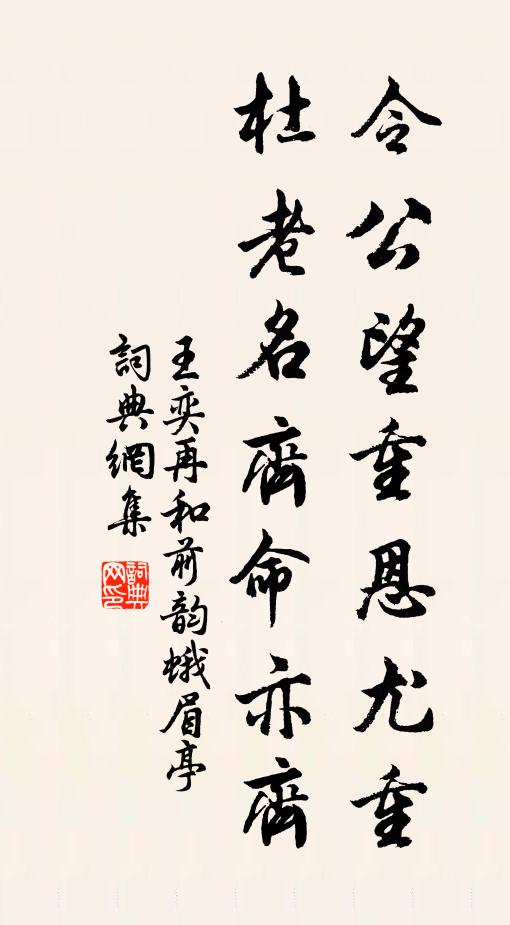 令公望重恩尤重
杜老名齊命亦齊
王奕再和前韵蛾眉亭
詞典網集
詞典网印